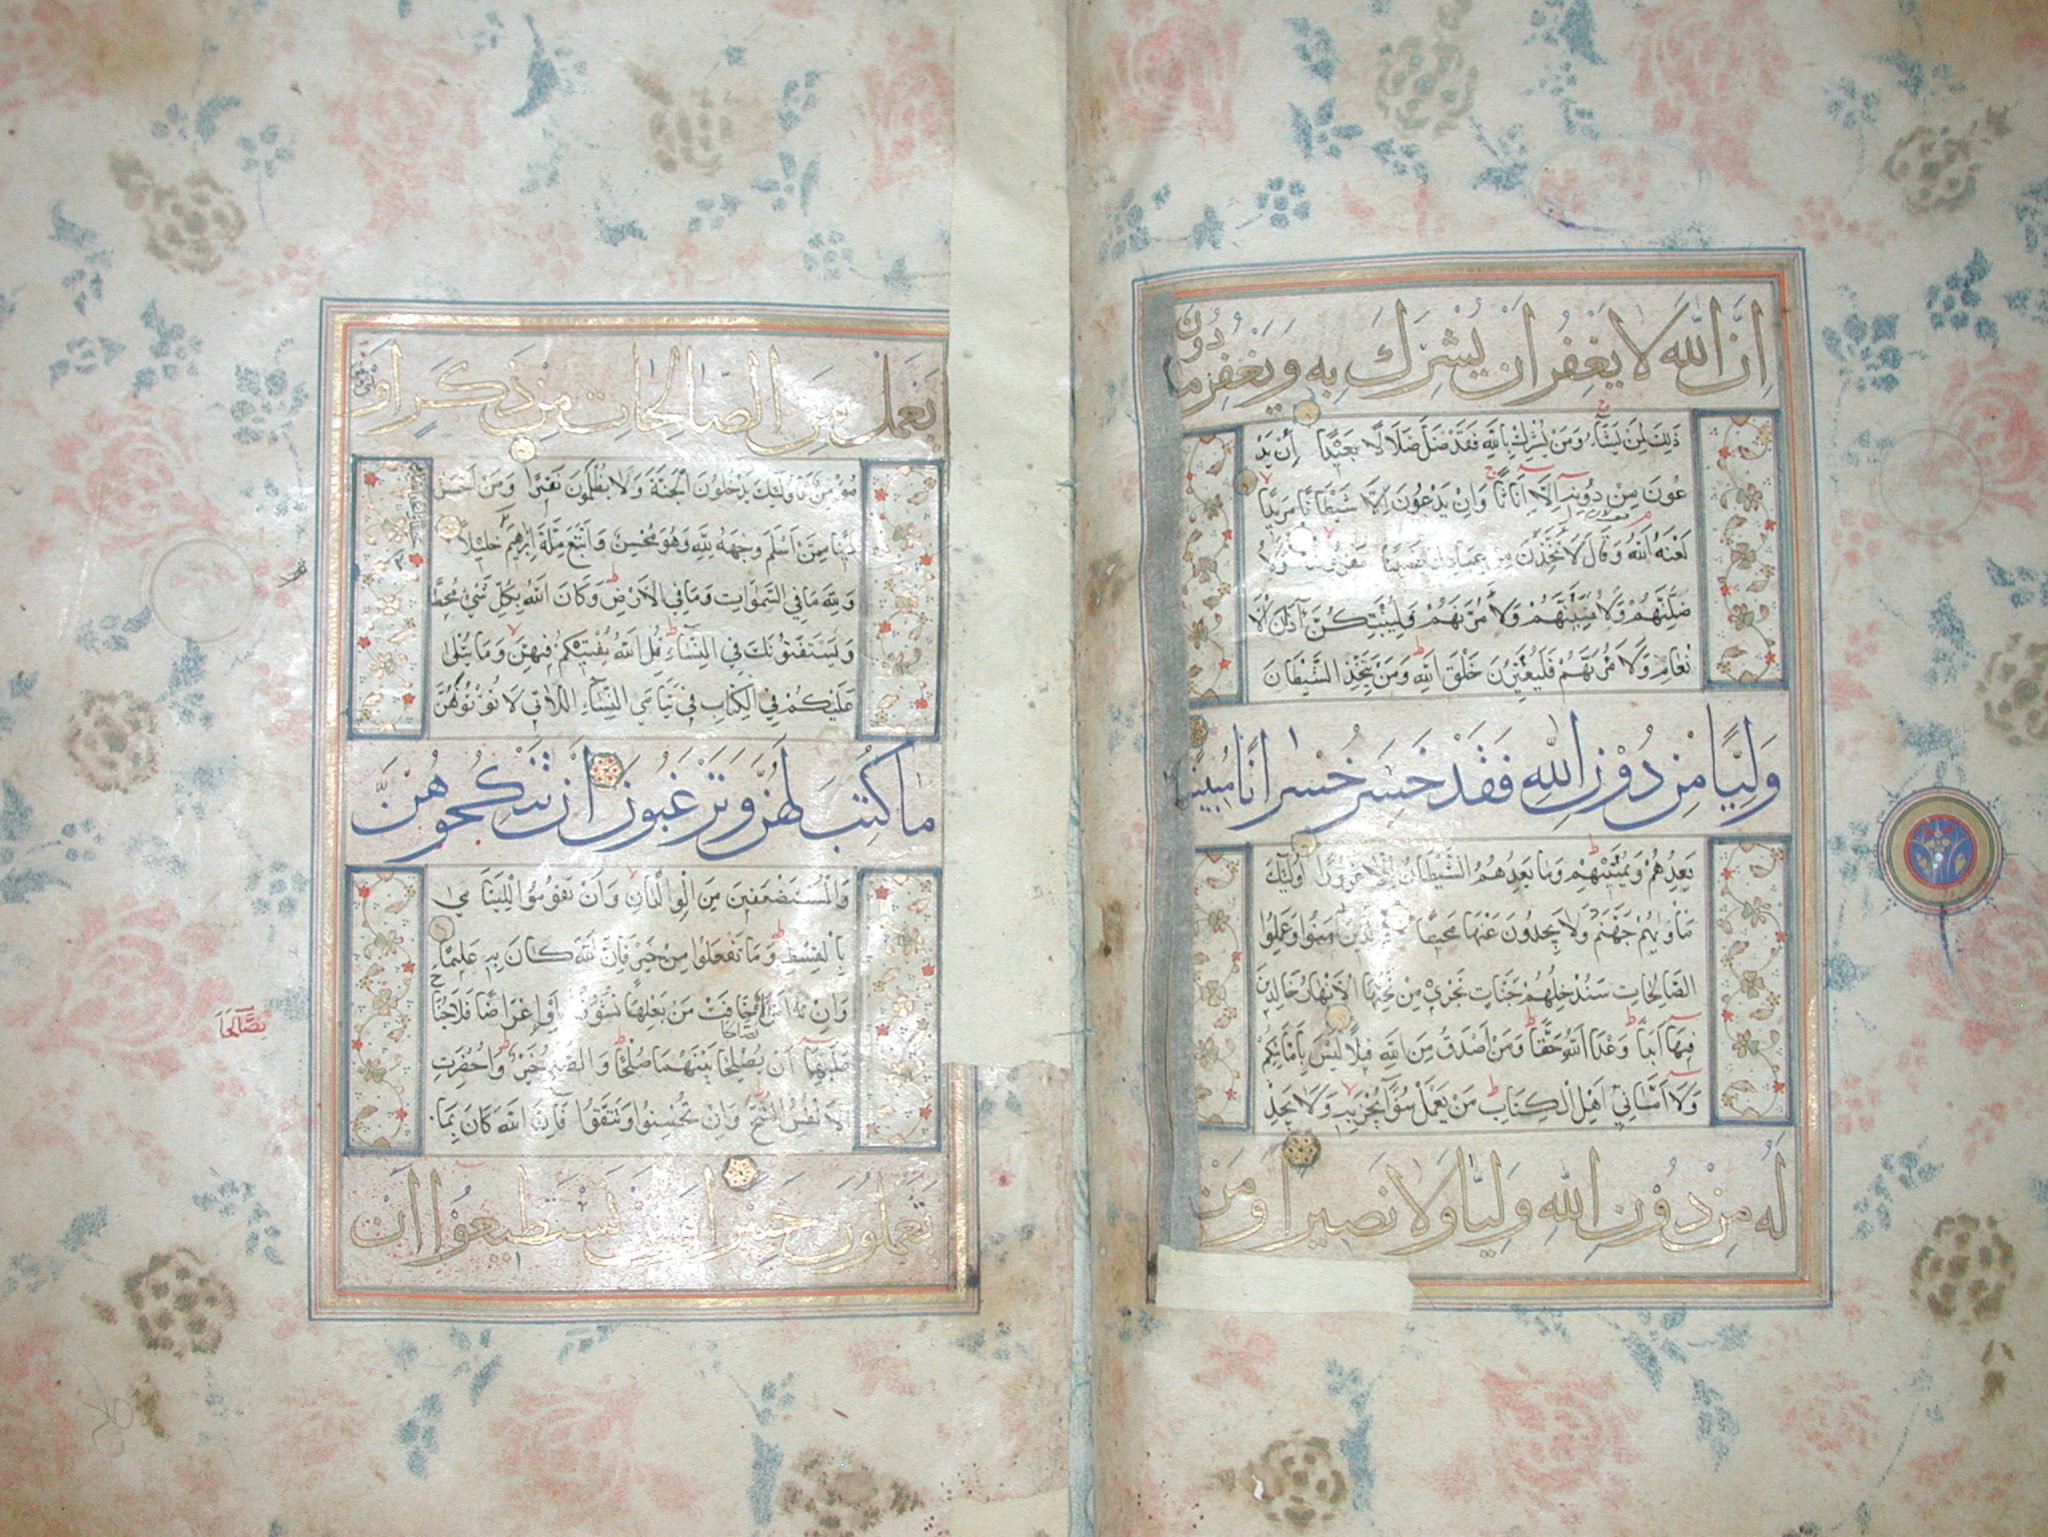 اِنَّ اللّٰهَ لَا يَغْفِرُ اَنْ يُشْرَكَ بِهِ وَيَغْفِرُ مَا دُونَ
ذٰلِكَ لِمَنْ يَشَٓاءُ وَمَنْ يُشْرِكْ بِاللّٰهِ فَقَدْ ضَلَّ ضَلَالًا بَعٖيدًا اِنْ يَدْ
عُونَ مِنْ دُونِهٖ اِلَّا اِنَاثًا وَاِنْ يَدْعُونَ اِلَّا شَيْطَانًا مَرٖيدًا
لَعَنَهُ اللّٰهُ وَقَالَ لَاَتَّخِذَنَّ مِنْ عِبَادِكَ نَصٖيبًا مَفْرُوضًا وَلَاُ
ضِلَّنَّهُمْ وَلَاُمَنِّيَنَّهُمْ وَلَاٰمُرَنَّهُمْ فَلَيُبَتِّكُنَّ اٰذَانَ الْاَ
نْعَامِ وَلَاٰمُرَنَّهُمْ فَلَيُغَيِّرُنَّ خَلْقَ اللّٰهِ وَمَنْ يَتَّخِذِ الشَّيْطَانَ
وَلِيًّا مِنْ دُونِ اللّٰهِ فَقَدْ خَسِرَ خُسْرَانًا مُبٖينًا
يَعِدُهُمْ وَيُمَنّٖيهِمْ وَمَا يَعِدُهُمُ الشَّيْطَانُ اِلَّا غُرُورًا اُولٰٓئِكَ
مَأْوٰيهُمْ جَهَنَّمُ وَلَا يَجِدُونَ عَنْهَا مَحٖيصًا وَالَّذٖينَ اٰمَنُوا وَعَمِلُوا
الصَّالِحَاتِ سَنُدْخِلُهُمْ جَنَّاتٍ تَجْرٖي مِنْ تَحْتِهَا الْاَنْهَارُ خَالِدٖينَ
فٖيهَا اَبَدًا وَعْدَ اللّٰهِ حَقًّا وَمَنْ اَصْدَقُ مِنَ اللّٰهِ قٖيلًا لَيْسَ بِاَمَانِيِّكُمْ
وَلَا اَمَانِيِّ اَهْلِ الْكِتَابِ مَنْ يَعْمَلْ سُوٓءًا يُجْزَ بِهٖ وَلَا يَجِدْ
لَهُ مِنْ دُونِ اللّٰهِ وَلِيًّا وَلَا نَصٖيرًا وَمَنْ
يَعْمَلْ مِنَ الصَّالِحَاتِ مِنْ ذَكَرٍ اَوْ
مُؤْمِنٌ فَاُولٰٓئِكَ يَدْخُلُونَ الْجَنَّةَ وَلَا يُظْلَمُونَ نَقٖيرًا وَمَنْ اَحْسَنُ
دٖينًا مِمَّنْ اَسْلَمَ وَجْهَهُ لِلّٰهِ وَهُوَ مُحْسِنٌ وَاتَّبَعَ مِلَّةَ اِبْرٰهٖيمَ خَلٖيلًا
وَلِلّٰهِ مَا فِي السَّمٰوَاتِ وَمَا فِي الْاَرْضِ وَكَانَ اللّٰهُ بِكُلِّ شَيْءٍ مُحٖيطًا
وَيَسْتَفْتُونَكَ فِي النِّسَٓاءِ قُلِ اللّٰهُ يُفْتٖيكُمْ فٖيهِنَّ وَمَا يُتْلٰى
عَلَيْكُمْ فِي الْكِتَابِ فٖي يَتَامَى النِّسَٓاءِ اللَّاتٖي لَا تُؤْتُونَهُنَّ
مَا كُتِبَ لَهُنَّ وَتَرْغَبُونَ اَنْ تَنْكِحُوهُنَّ
وَالْمُسْتَضْعَفٖينَ مِنَ الْوِلْدَانِ وَاَنْ تَقُومُوا لِلْيَتَامٰى
بِالْقِسْطِ وَمَا تَفْعَلُوا مِنْ خَيْرٍ فَاِنَّ اللّٰهَ كَانَ بِهٖ عَلٖيمًا
وَاِنِ امْرَاَةٌ خَافَتْ مِنْ بَعْلِهَا نُشُوزًا اَوْ اِعْرَاضًا فَلَا جُنَاحَ
عَلَيْهِمَا اَنْ يُصْلِحَا بَيْنَهُمَا صُلْحًا وَالصُّلْحُ خَيْرٌ وَاُحْضِرَتِ
الْاَنْفُسُ الشُّحَّ وَاِنْ تُحْسِنُوا وَتَتَّقُوا فَاِنَّ اللّٰهَ كَانَ بِمَا
تَعْمَلُونَ خَبٖيرًا وَلَنْ تَسْتَطٖيعُوا اَنْ
يَصَّالَحَا